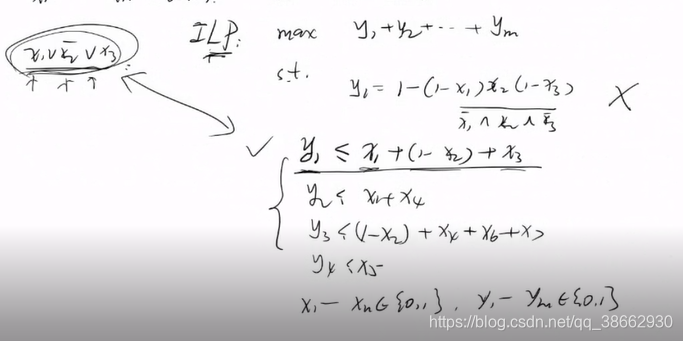 x₁ ∨ x̄₂ ∨ x₃
ILP: max y₁+y₂+⋯+yₘ
s.t.
y₁ = 1-(1-x₁)x₂(1-x₃) X
x̄₁ ∧ x₂ ∧ x̄₃
✓ y₁ ≤ x₁+(1-x₂)+x₃
y₂ ≤ x₁+x₄
y₃ ≤ (1-x₂)+x₄+x₆+x₇
y₄ ≤ x₅
x₁ - xₙ ∈ {0,1}, y₁ - yₘ ∈ {0,1}
https://blog.csdn.net/qq_38662930